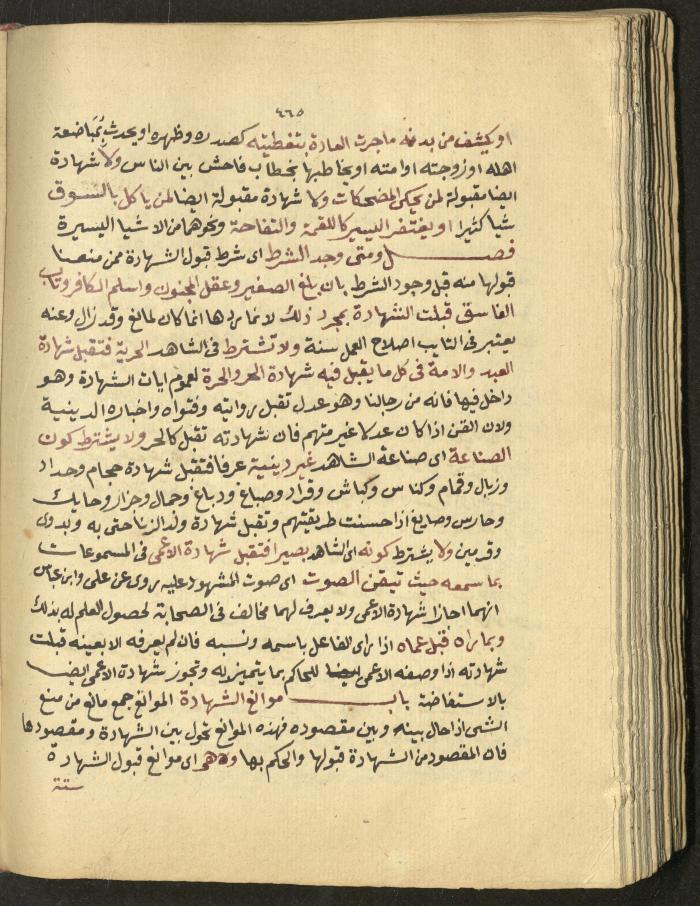 ٤٦٥
او يكشف من بدنه ماجرت العادة بتغطيته كصدره وظهره او يحدث بمباضعة
اهله او زوجته او امته او يخاطبها بخطاب فاحش بين الناس ولا شهادة
ايضا مقبولة لمن يحكى المضحكات ولا شهادة مقبولة ايضا لمن ياكل بالسوق
شيا كثيرا او يغتفر اليسير كاللقمة والتفاحة ونحوهما من الاشيا اليسيرة
فصل ومتى وجد الشرط اى شرط قبول الشهادة ممن منعنا
قبولها منه قبل وجود الشرط بان بلغ الصغير وعقل المجنون واسلم الكافر وتاب
الفاسق قبلت الشهادة بمجرد ذلك لانما ردها انما كان لمانع وقد زال وعنه
يعتبر فى التايب اصلاح العمل سنة ولا تشترط فى الشاهد الحرية فتقبل شهادة
العبد والامة فى كل ما يقبل فيه شهادة الحر والحرة لعموم ايات الشهادة وهو
داخل فيها فانه من رجالنا وهو عدل تقبل روايته وفتواه واخباره الدينية
ولان القن اذا كان عدلا غير متهم فان شهادته تقبل كالحر ولا يشترط كون
الصناعة اى صناعة الشاهد غير دنيئة عرفا فتقبل شهادة حجام وحداد
وزبال وقمام وكناس وكباش وقراد وصباغ ودباغ وجمال وجزار وحايك
وحارس وصايغ اذا حسنت طريقتهم وتقبل شهادة ولد الزنا حتى به وبدوى
وقروي‍ين ولا يشترط كونه اى الشاهد بصيرا فتقبل شهادة الاعمى فى المسموعات
بما سمعه حيث تيقن الصوت اى صوت المشهود عليه روى عن على وابن عباس
انهما اجازا شهادة الاعمى ولا يعرف لهما مخالف فى الصحابة لحصول العلم له بذلك
وبما راه قبل عماه اذا راى الفاعل باسمه ونسبه فان لم يعرفه الا بعينه قبلت
شهادته اذا وصفه الاعمى للحاكم بما يتميز به وتجوز شهادة الاعمى ايضا
بالاستفاضة باب موانع الشهادة الموانع جمع مانع من منع
الشى اذا حال بينه وبين مقصوده فهذه الموانع تحول بين الشهادة ومقصودها
فان المقصود من الشهادة قبولها والحكم بها وهى اى موانع قبول الشهادة
ستة